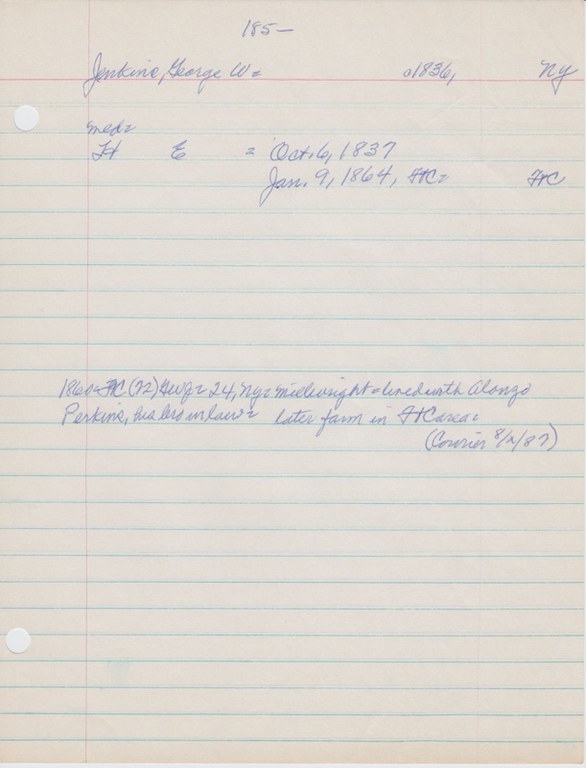 185-
Jenkins, George W= a1836, Ny
med=
H E = Oct. 6, 1837
Jan. 9, 1864, HC= HC
1860=HC (72) GWJ= 24, Ny= millwright=lived with Alonzo
Perkins, his bro in law= later farm in HC area=
(Courier 8/2/87)